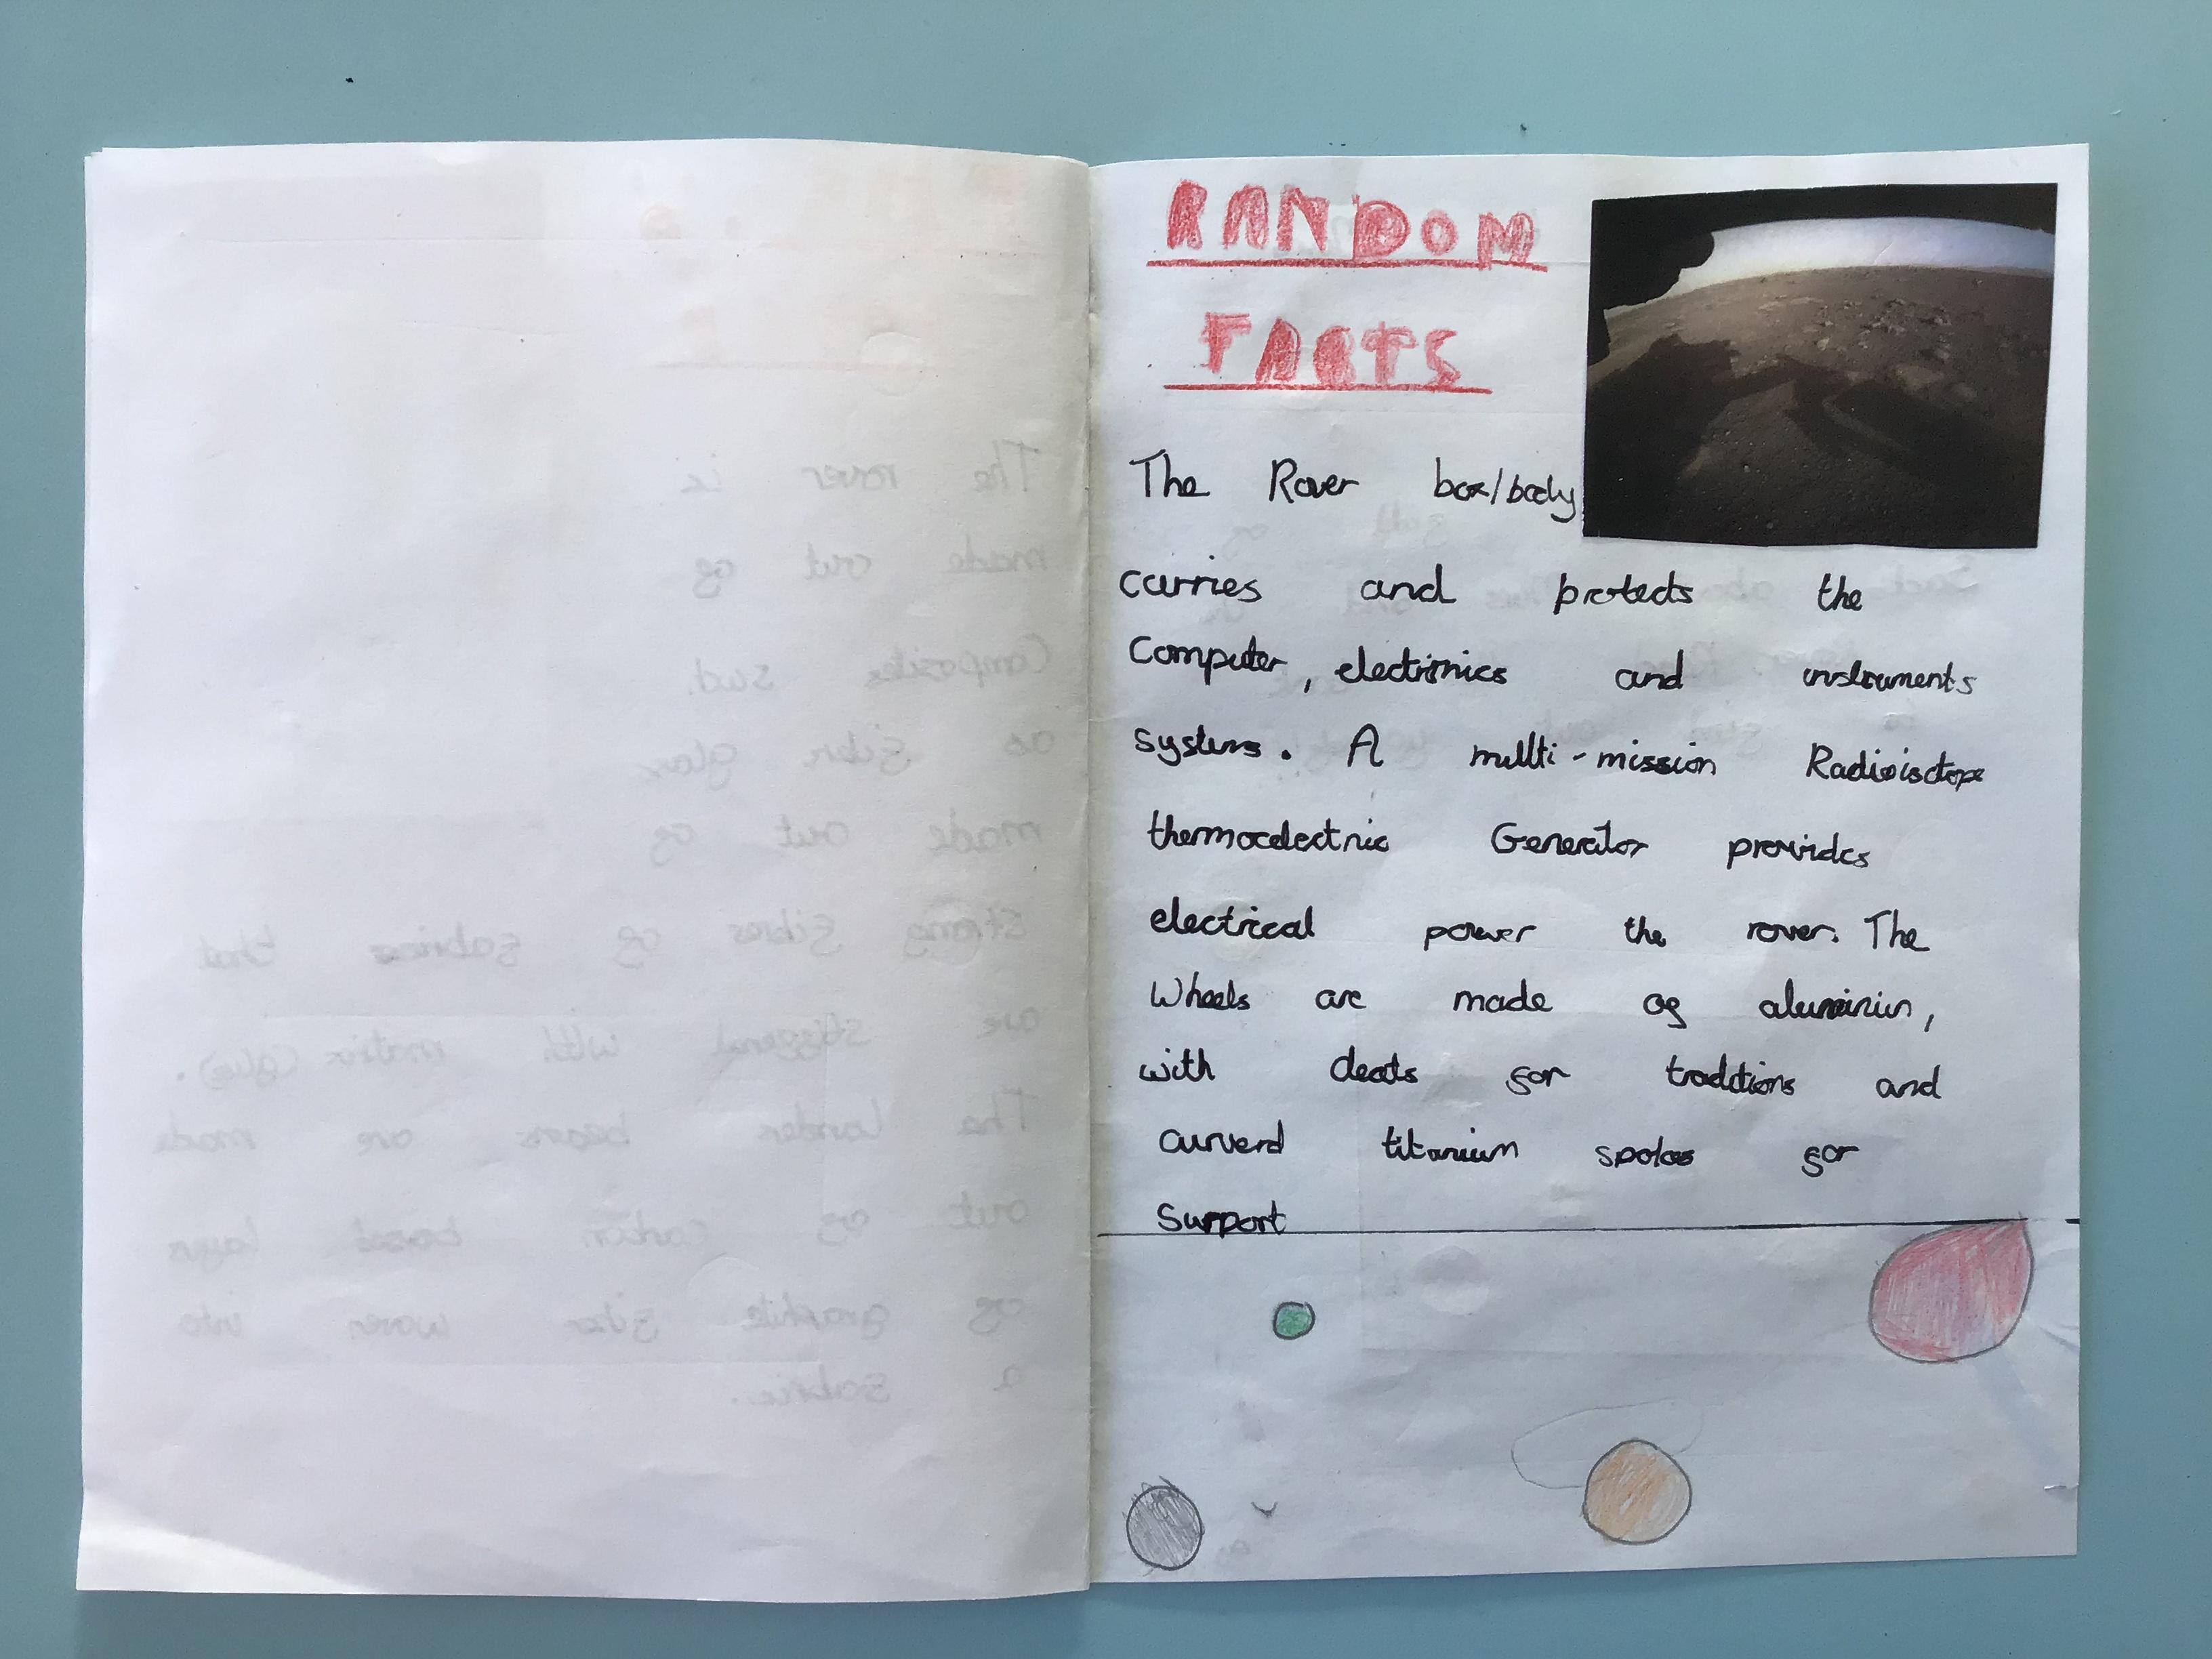 RANDOM
FACTS
The Rover box/body
carries and protects the
Computer, electronics and instruments
systems. A multi-mission Radioisotope
thermoelectric Generator provides
electrical power the rover. The
Wheels are made of aluminium,
with cleats for traditions and
curverd titanium spokes for
Support